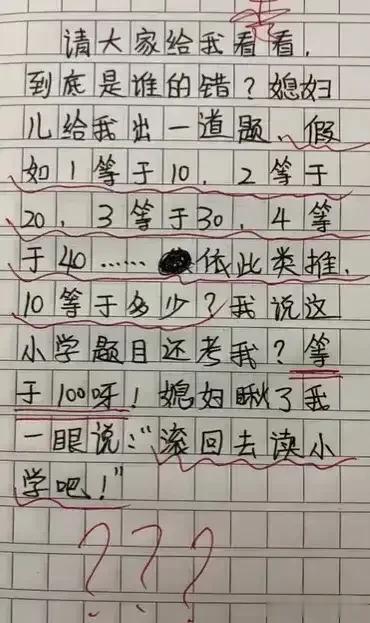 请大家给我看看,
到底是谁的错?媳妇
儿给我出一道题、假
如1等于10.2等于
20,3等于30,4等
于40……依此类推.
10等于多少?我说这
小学题目还考我?等
于100呀!媳妇瞅了我
一眼说:“滚回去读小
学吧!”
???